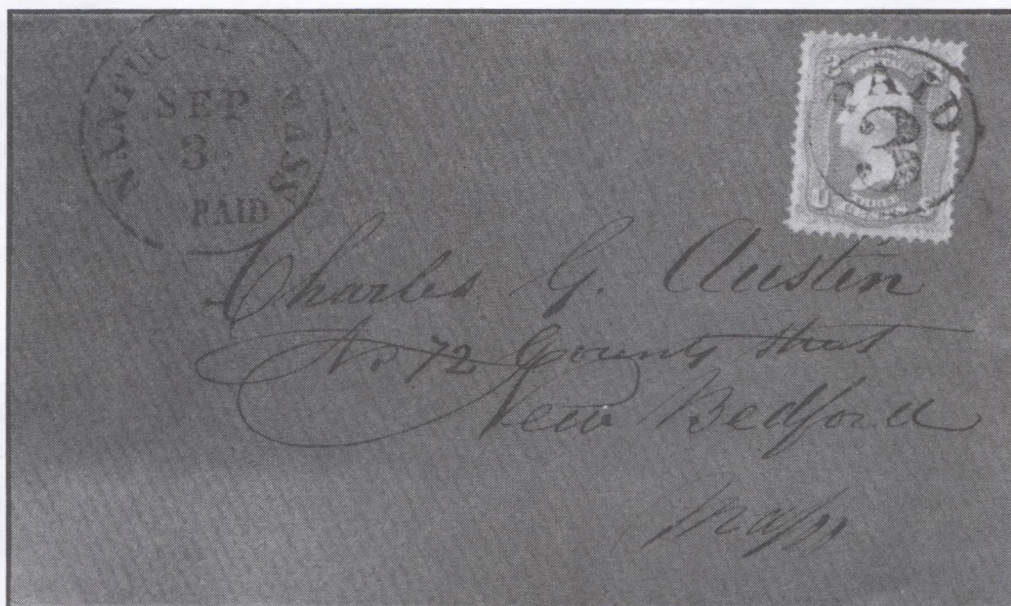 NANTUCKET MASS.
SEP
3
PAID
PAID
3
Charles G. Austin
No 72 County Street
New Bedford
Mass